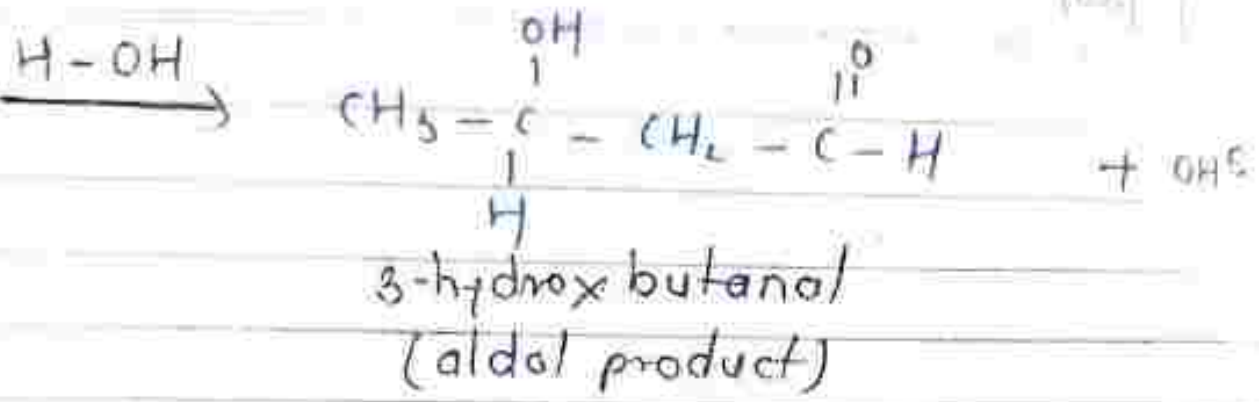 OH
H - OH
O
CH3 - C - CH2 - C - H + OH⊖
H
3-hydrox butanal
(aldol product)